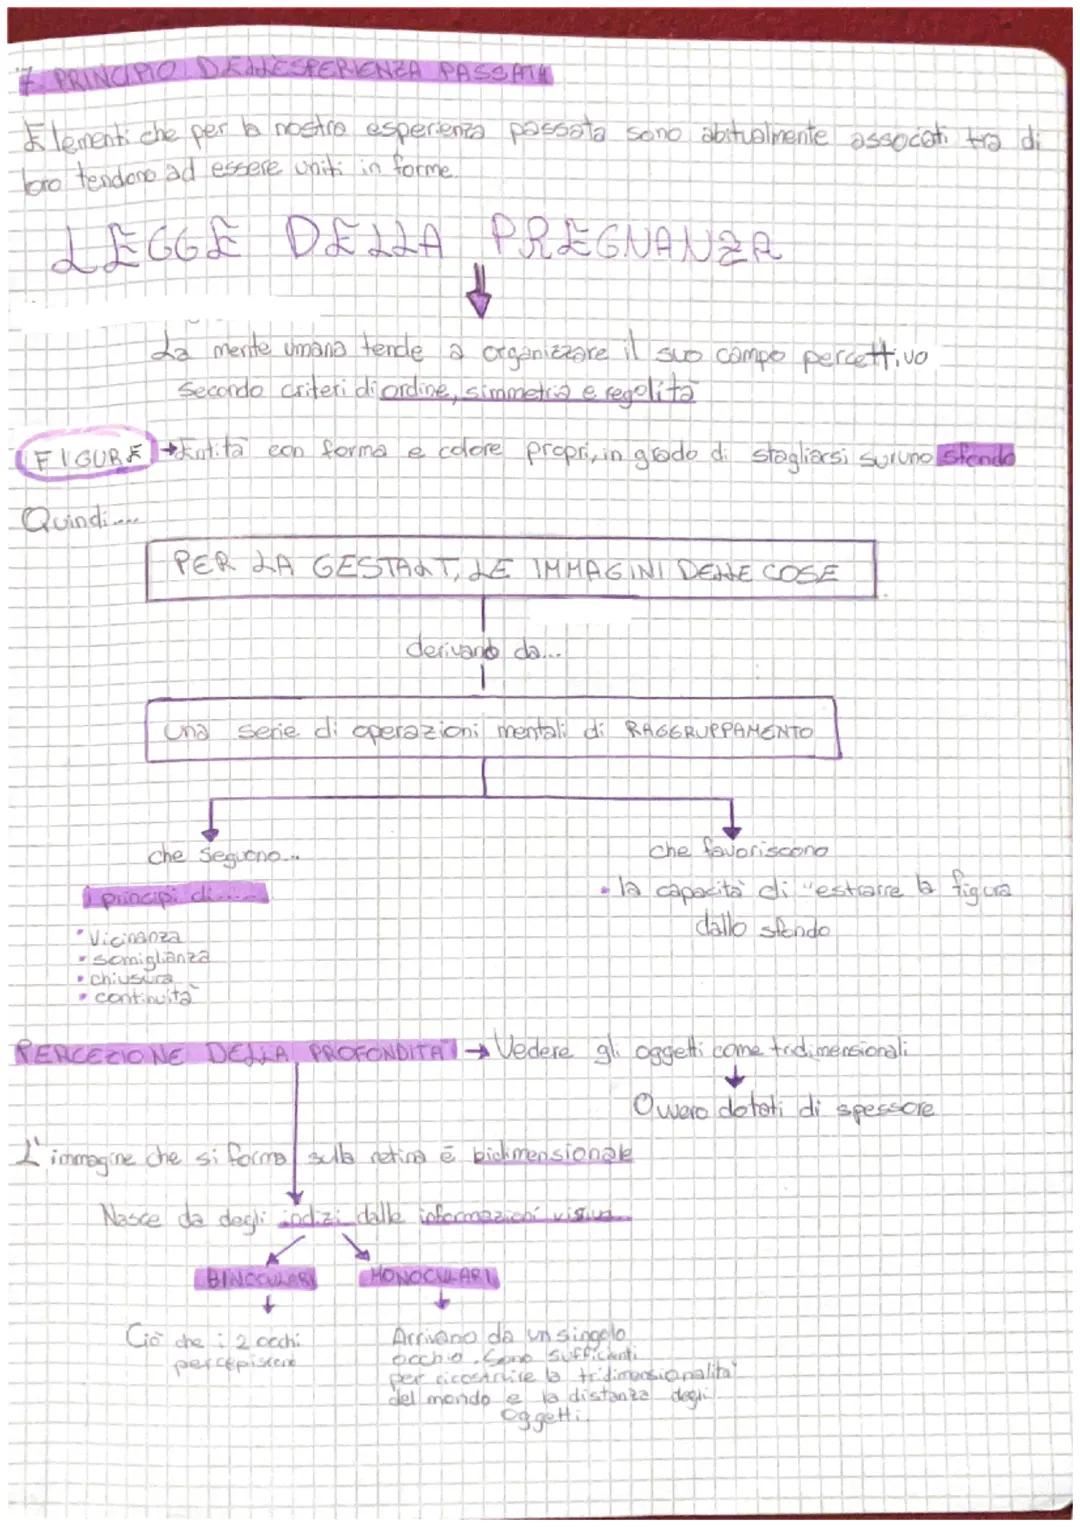 7. PRINCIPIO DELL'ESPERIENZA PASSATA
Elementi che per la nostra esperienza passata sono abitualmente associati tra di
loro tendono ad essere uniti in forme.
LEGGE DELLA PREGNANZA
La mente umana tende a organizzare il suo campo percettivo
secondo criteri di ordine, simmetria e regolità
FIGURE → Entità con forma e colore propri, in grado di stagliarsi su runo sfondo
Quindi....
PER LA GESTALT, LE IMMAGINI DELLE COSE
derivano da...
una serie di operazioni mentali di RAGGRUPPAMENTO
che seguono...
che favoriscono
i principi di......
• la capacità di "estrarre la figura
dallo sfondo
• Vicinanza
• somiglianza
• chiusura
• continuità
PERCEZIONE DELLA PROFONDITA' → Vedere gli oggetti come tridimensionali
Ovvero dotati di spessore
L'immagine che si forma sulla retina è bidimensionale
Nasce da degli indizi dalle informazioni visive
BINOCULARI MONOCULARI
Ciò che i 2 occhi
percepiscono
Arrivano da un singolo
occhio. Sono sufficienti
per ricostruire la tridimensionalità
del mondo e la distanza degli
oggetti.